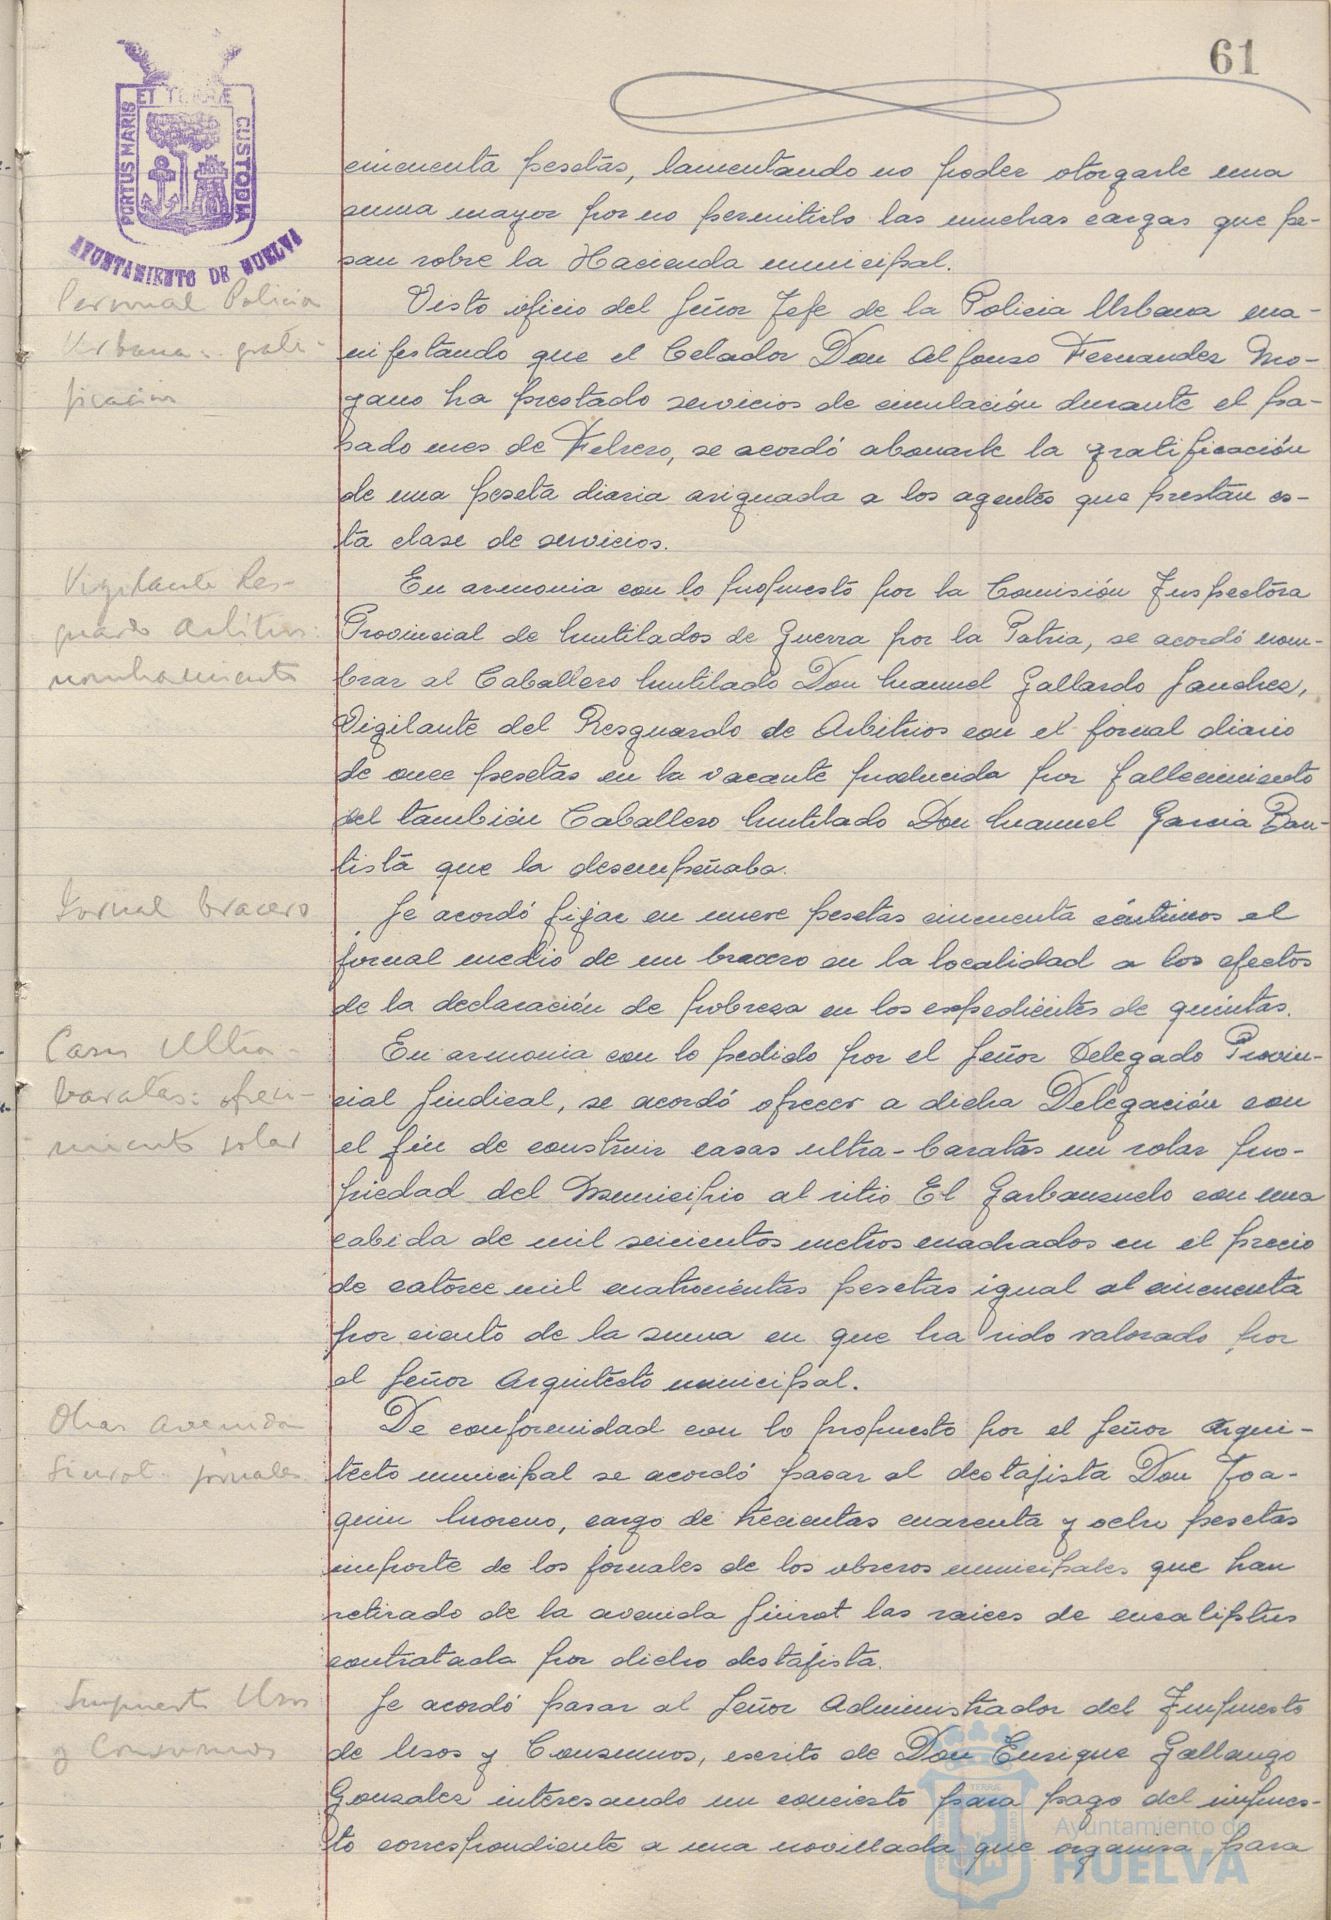 61
PORTUS MARIS ET TERRAE CUSTODIA
AYUNTAMIENTO DE HUELVA
cincuenta pesetas, lamentando no poder otorgarle una
suma mayor por no permitirlo las muchas cargas que pe-
san sobre la Hacienda municipal.
Personal Policia
Urbana: grati-
ficación
Visto oficio del Señor Jefe de la Policia Urbana ma-
nifestando que el Celador Don Alfonso Fernandez Mo-
yano ha prestado servicios de circulación durante el pa-
sado mes de Febrero, se acordó abonarle la gratificación
de una peseta diaria asignada a los agentes que prestan es-
ta clase de servicios.
Vigilante Res-
guardo Arbitrios:
nombramiento
En armonia con lo propuesto por la Comisión Inspectora
Provincial de Mutilados de Guerra por la Patria, se acordó nom-
brar al Caballero Mutilado Don Manuel Gallardo Sanchez,
Vigilante del Resguardo de Arbitrios con el jornal diario
de once pesetas en la vacante producida por fallecimiento
del también Caballero Mutilado Don Manuel Garcia Bau-
tista que la desempeñaba.
Jornal bracero
Se acordó fijar en nueve pesetas cincuenta céntimos el
jornal medio de un bracero en la localidad a los efectos
de la declaración de pobreza en los expedientes de quintas.
Casas Ultra-
baratas: ofreci-
miento solar
En armonia con lo pedido por el Señor Delegado Provin-
cial Sindical, se acordó ofrecer a dicha Delegación con
el fin de construir casas ultra-baratas un solar pro-
piedad del Municipio al sitio El Garbanzuelo con una
cabida de mil seiscientos metros cuadrados en el precio
de catorce mil cuatrocientas pesetas igual al cincuenta
por ciento de la suma en que ha sido valorado por
el Señor Arquitecto municipal.
Obras Avenida
Siurot: jornales
De conformidad con lo propuesto por el Señor Arqui-
tecto municipal se acordó pasar al destajista Don Joa-
quin Moreno, cargo de trecientas cuarenta y ocho pesetas
importe de los jornales de los obreros municipales que han
retirado de la avenida Siurot las raices de eucaliptus
contratada por dicho destajista.
Impuesto Usos
y Consumos
Se acordó pasar al Señor Administrador del Impuesto
de Usos y Consumos, escrito de Don Enrique Gallango
Gonzalez interesando un concierto para pago del impues-
to correspondiente a una novillada que organiza para
Ayuntamiento de
HUELVA